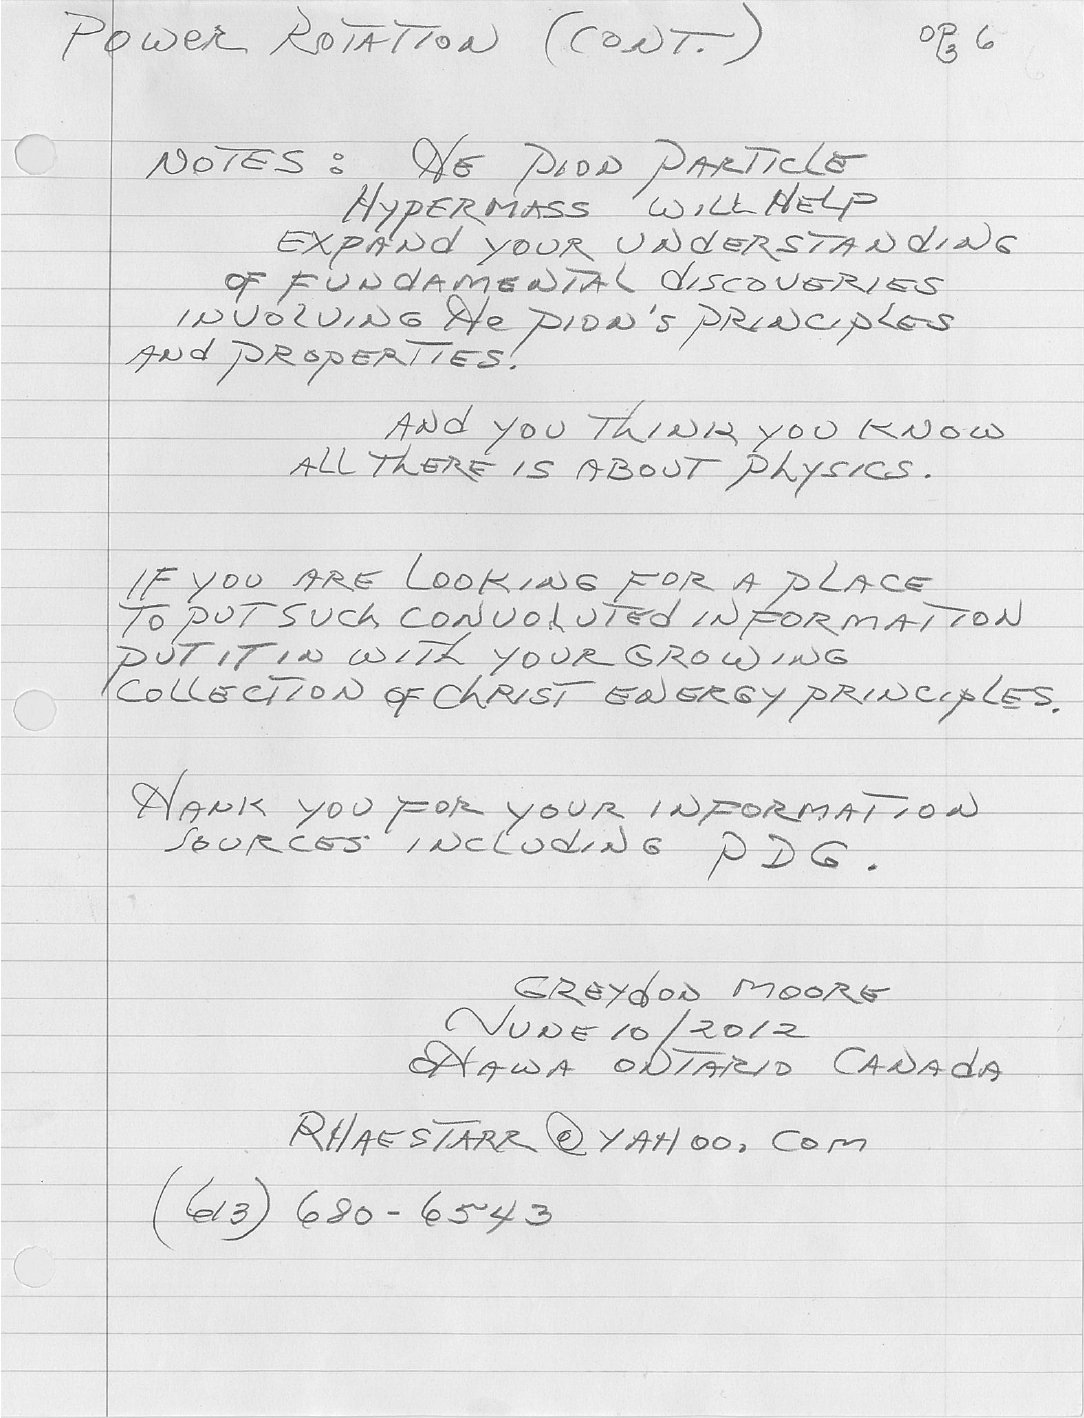 POWER ROTATION (CONT.) pg 6
NOTES: THE PION PARTICLE
HYPERMASS WILL HELP
EXPANd YOUR UNdERSTANdING
OF FUNdAMENTAL dISCOVERIES
INVOLVING THe PION'S PRINCIPLES
ANd PROPERTIES.
ANd YOU ThINK YOU KNOW
ALL ThERE IS ABOUT PhYSICS.
IF YOU ARE LOOKING FOR A PLACE
TO PUT SUCh CONVOLUTEd INFORMATION
PUT IT IN WITh YOUR GROWING
COLLECTION OF ChRIST ENERGY PRINCIPLES.
THANK YOU FOR YOUR INFORMATION
SOURCES INCLUdING PDG.
GREYdON MOORE
JUNE 10/2012
OTTAWA ONTARIO CANAdA
RHAESTARR@YAHOO.COM
(613) 680-6543